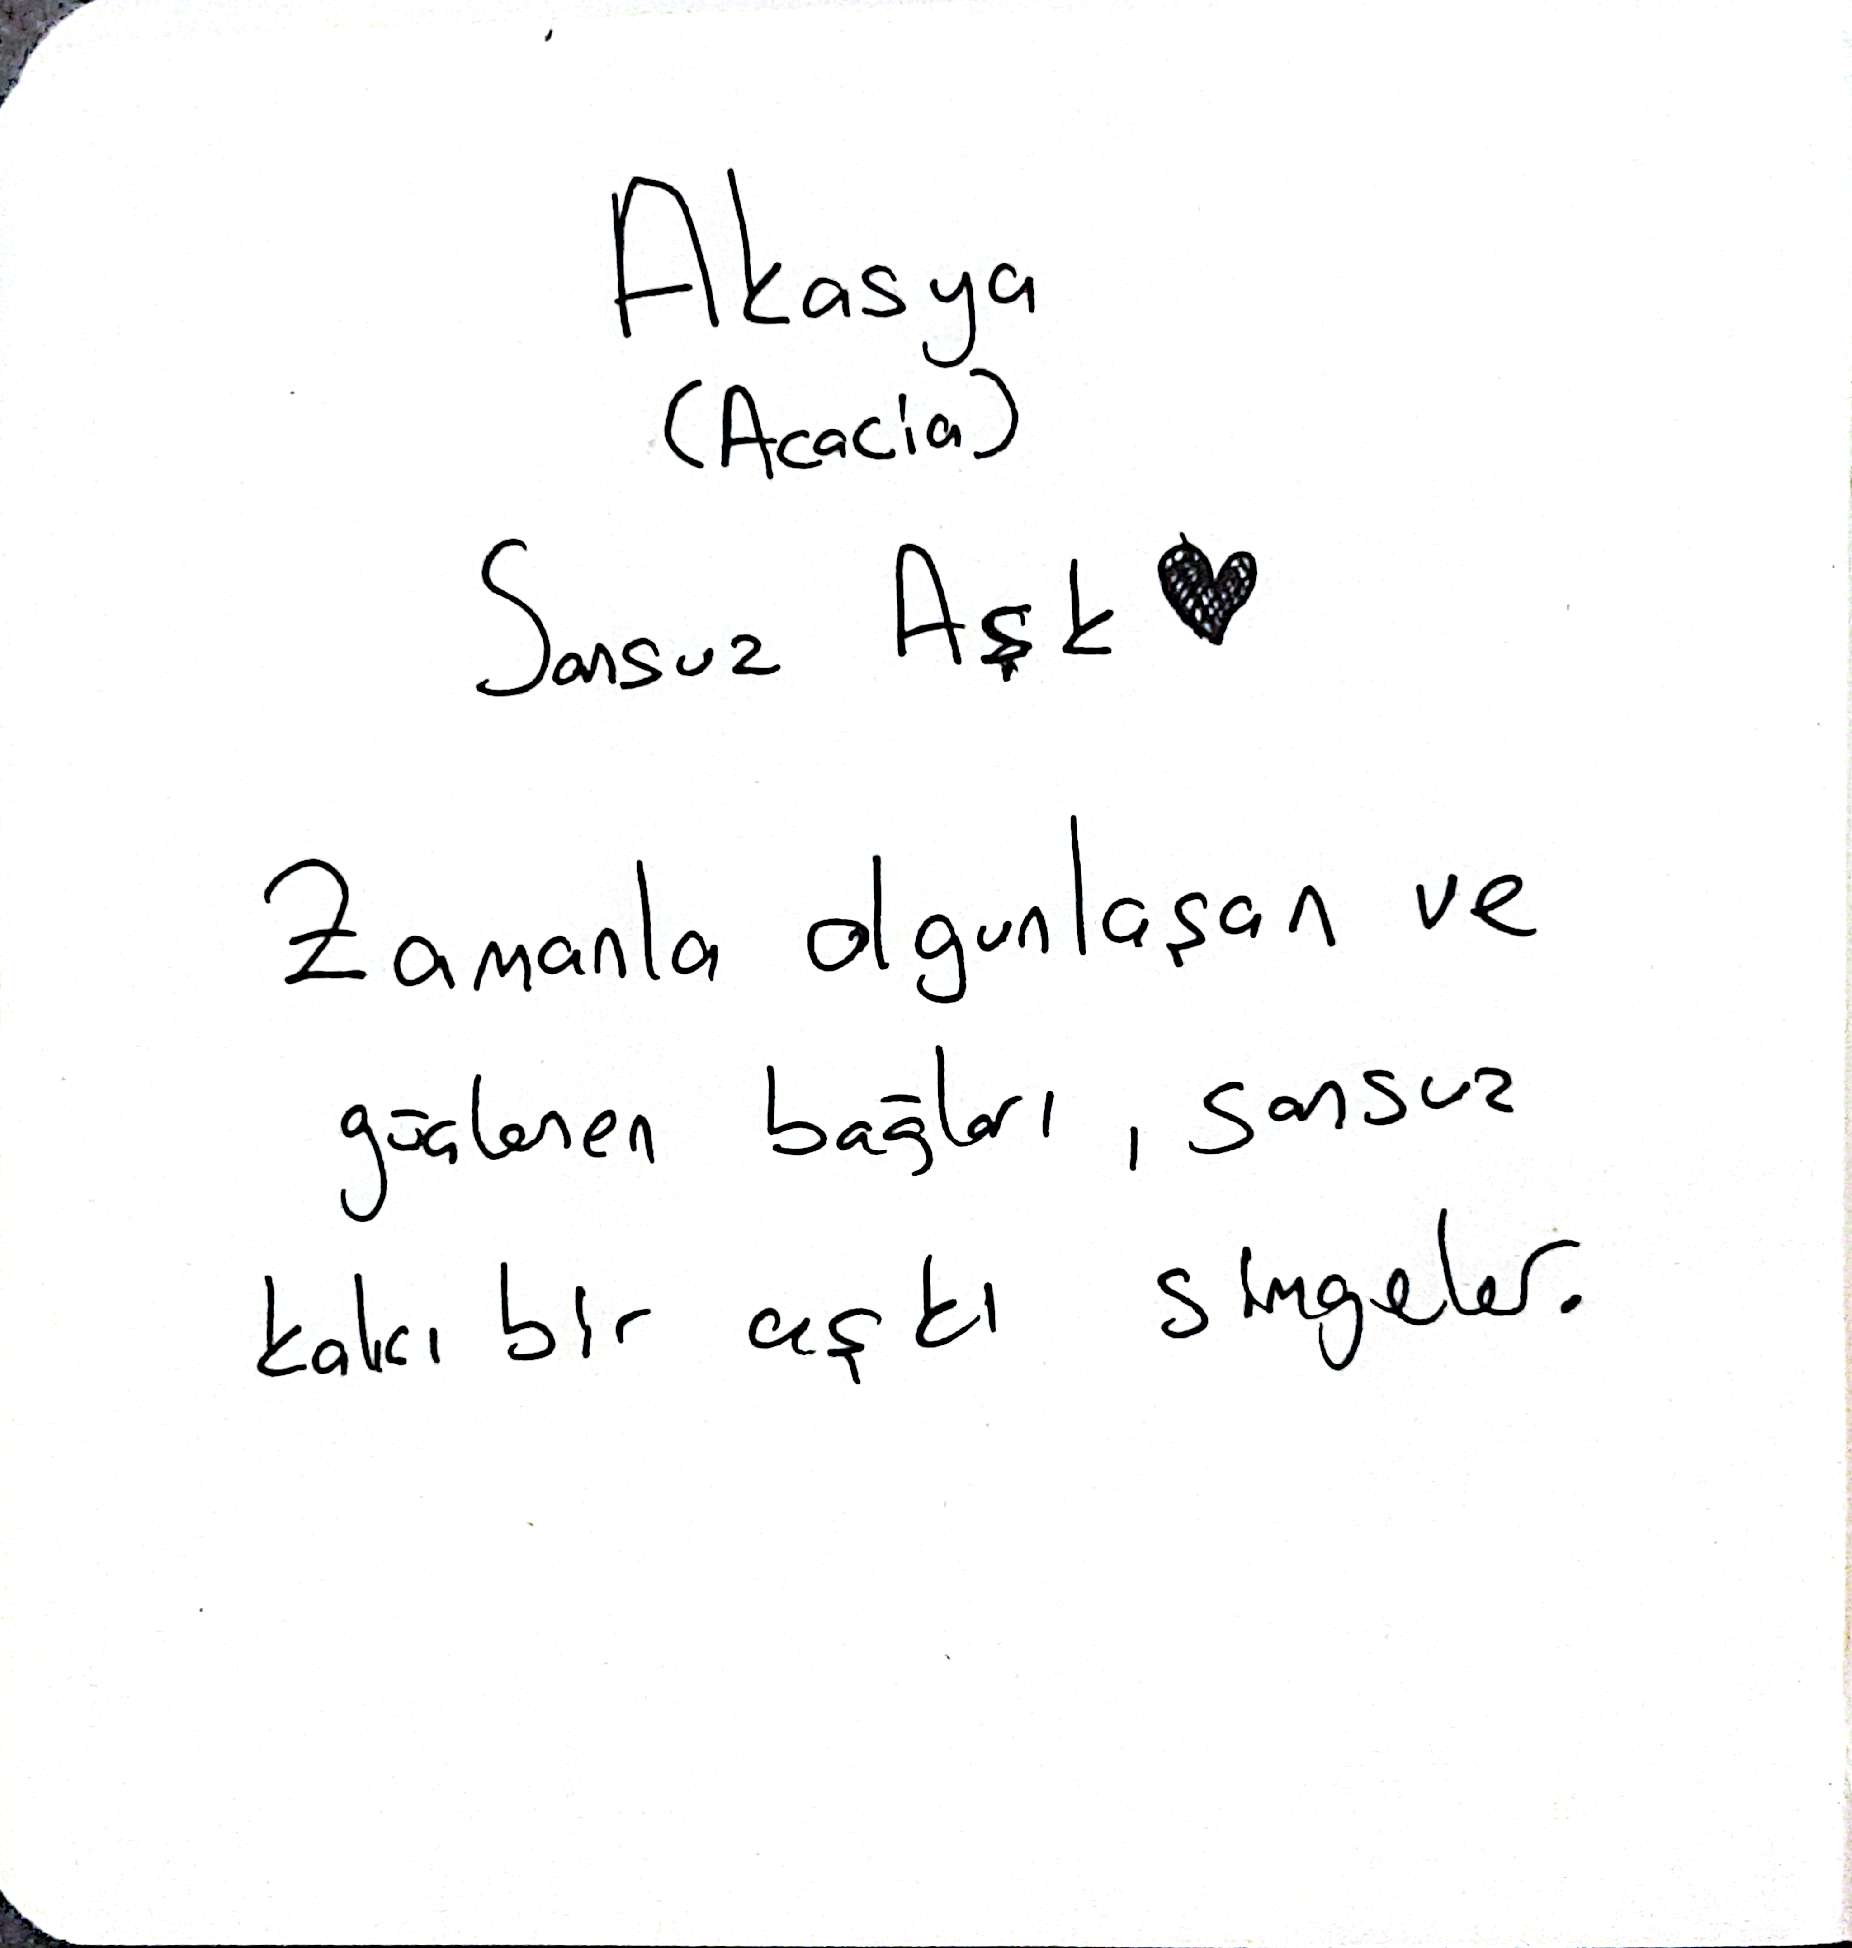 Akasya
(Acacia)
Sonsuz Aşk ♥
Zamanla olgunlaşan ve
güçlenen bağları, sonsuz
kalıcı bir aşkı simgeler.